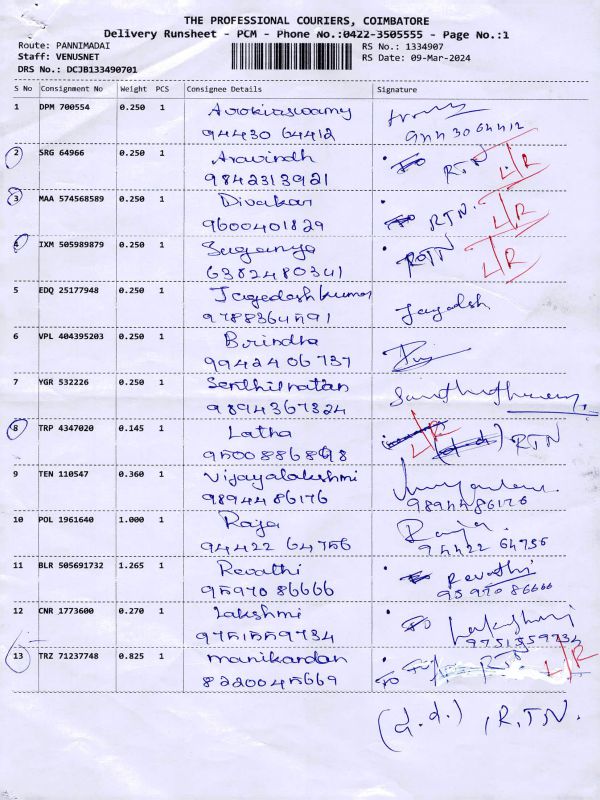 THE PROFESSIONAL COURIERS, COIMBATORE
Delivery Runsheet - PCM - Phone No.:0422-3505555 - Page No.:1
Route: PANNIMADAI RS No.: 1334907
Staff: VENUSNET RS Date: 09-Mar-2024
DRS No.: DCJB133490701
S No Consignment No Weight PCS Consignee Details Signature
1 DPM 700554 0.250 1 Arokiaswamy
94430 64412 94430 64412
2 SRG 64966 0.250 1 Aravindh RTN L/R
9842313921
3 MAA 574568589 0.250 1 Divakar RTN. L/R
9600401829
4 IXM 505989879 0.250 1 Suganya RTN L/R
6382480341
5 EDQ 25177948 0.250 1 Jagedeshkumar Jagadsh
9788364591
6 VPL 404395203 0.250 1 Brindha
99424 06737
7 YGR 532226 0.250 1 Senthilnatan
9894367324
8 TRP 4347020 0.145 1 Latha L/R (d.d.) RTN
95008868
9 TEN 110547 0.360 1 Vijayalakshmi
9894486176 9894486176
10 POL 1961640 1.000 1 Raja Raja.
94422 64756 94422 64756
11 BLR 505691732 1.265 1 Revathi Revathi
95970 86666 95970 86666
12 CNR 1773600 0.270 1 Lakshmi Lakshmi
9751559734 9751559734
13 TRZ 71237748 0.825 1 Manikandan RTN L/R
8220045669
(d.d.) , R.T.N.